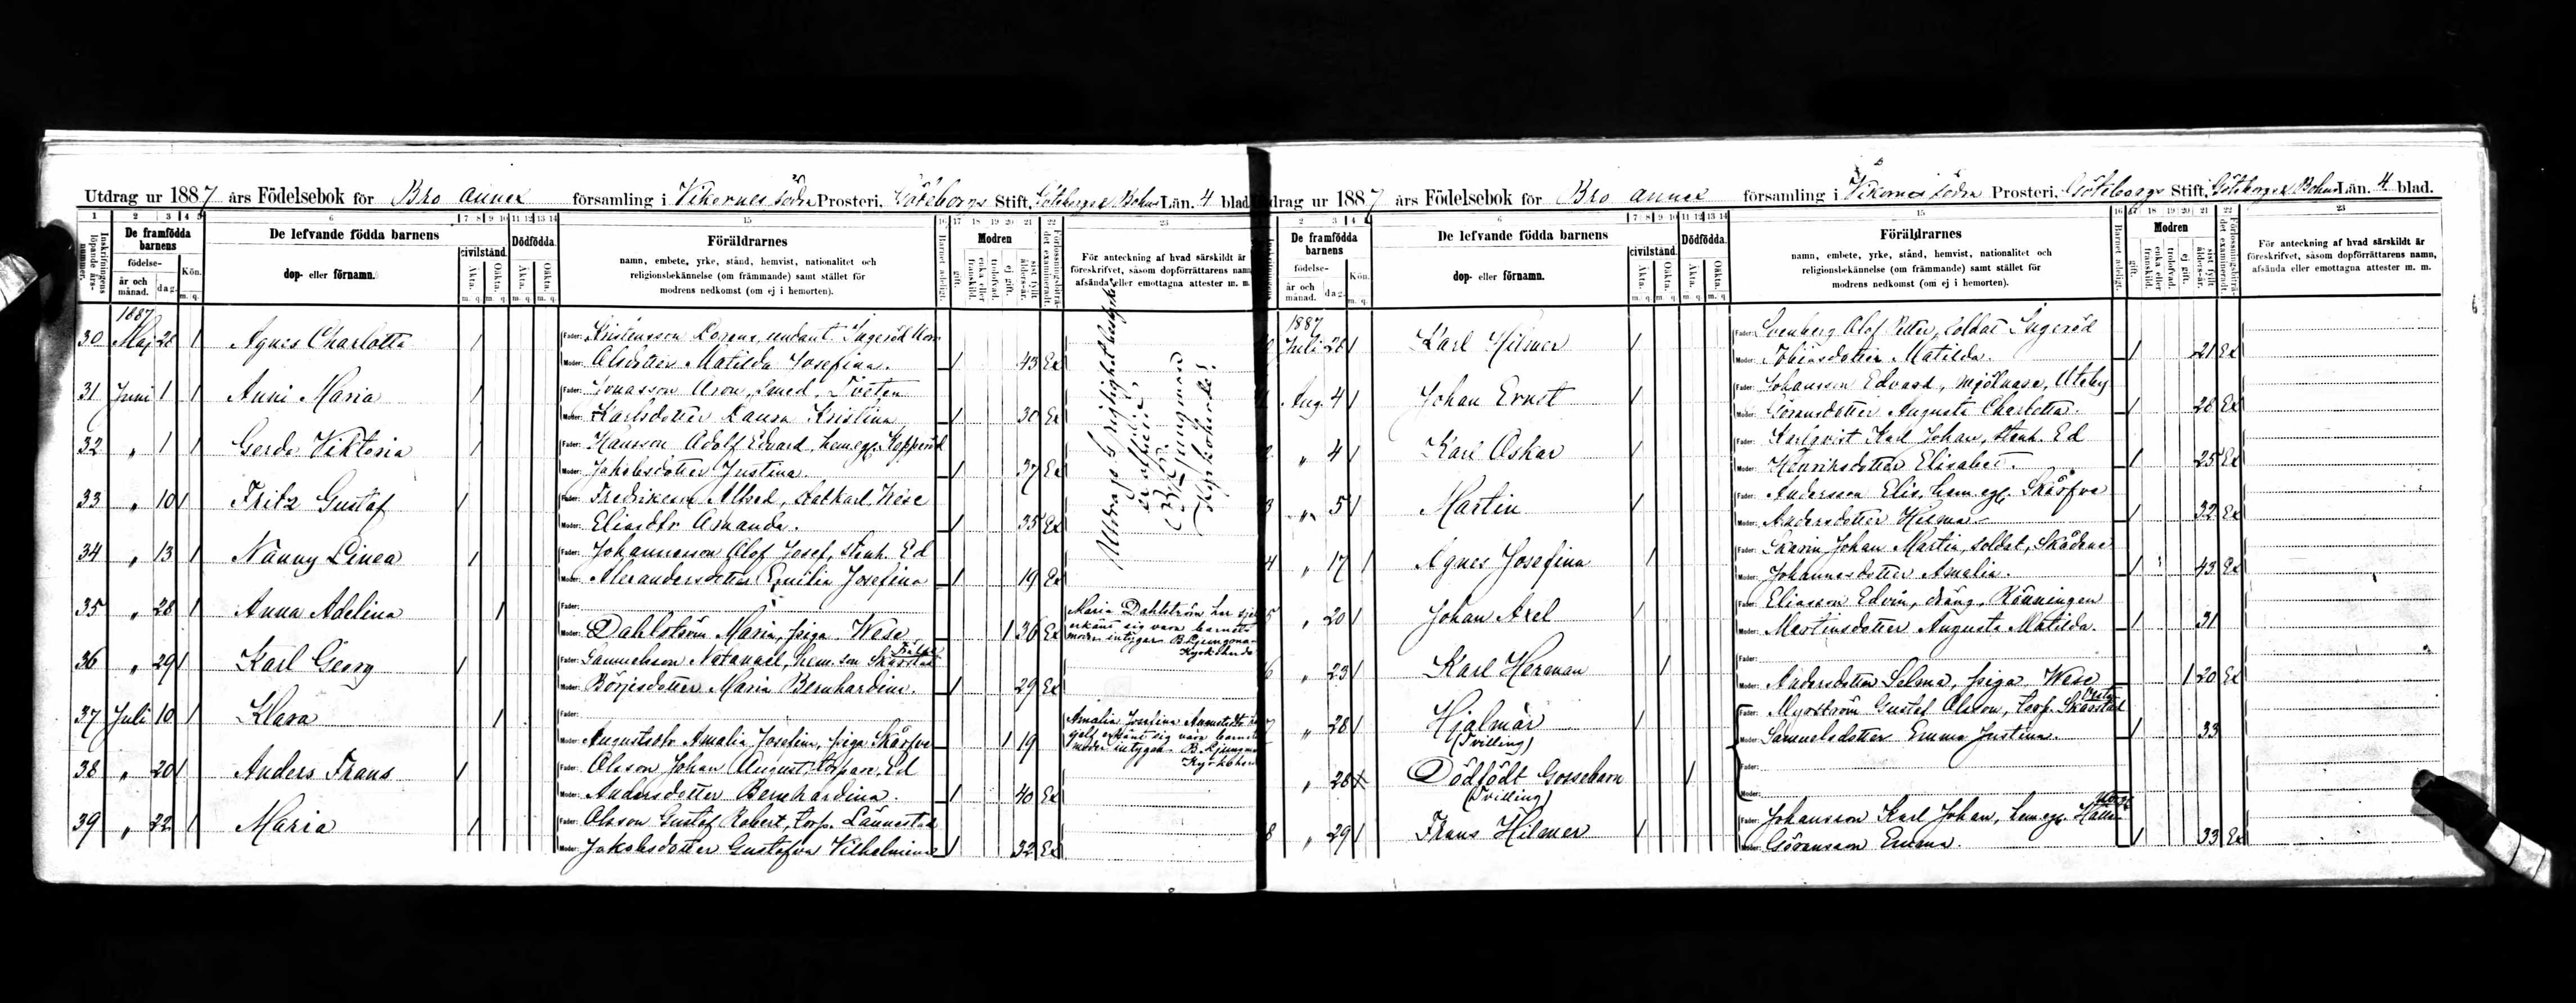 Utdrag ur 1887 års Födelsebok för Bro annex församling i Vikornes södra Prosteri, Göteborgs Stift, Göteborgs & Bohus Län. 4 blad.
1 2 3 4 5 6 7 8 9 10 11 12 13 14 15 16 17 18 19 20 21 22 23
Inskrifningens löpande års-nummer.
De framfödda barnens
födelse-
år och månad.
dag.
Kön.
m. q.
De lefvande födda barnens
dop- eller förnamn.
civilstånd.
Äkta.
Oäkta.
m. q. m. q.
Dödfödda.
Äkta.
Oäkta.
m. q. m. q.
Föräldrarnes
namn, embete, yrke, stånd, hemvist, nationalitet och
religionsbekännelse (om främmande) samt stället för
modrens nedkomst (om ej i hemorten).
Barnet adeligt.
Modren
gift.
enka eller frånskild.
trolofvad.
ej gift.
sist fyllt ålders-år.
Förlossningsbiträ-det examineradt.
För anteckning af hvad särskildt är
föreskrifvet, såsom dopförrättarens namn,
afsända eller emottagna attester m. m.
1887
30 Maj 28 1 Agnes Charlotta 1
Fader: Kristensson Lorens, undant. Ingeröd
Moder: Olsdotter Matilda Josefina. 1 43 Ex
31 Juni 1 1 Anni Maria 1
Fader: Jonasson Aron, smed, Tveten
Moder: Karlsdotter Laura Kristina 1 30 Ex
32 " 1 1 Gerda Viktoria 1
Fader: Hansson Adolf Edvard, hem.eg.
Moder: Jakobsdotter Justina. 1 37 Ex
33 " 10 1 Fritz Gustaf 1
Fader: Fredriksson Alfred, statkarl, Wese
Moder: Eliasdtr Amanda. 1 35 Ex
34 " 13 1 Nanny Linea 1
Fader: Johannesson Olof Josef, stenh. Ed
Moder: Alexandersdotter Emilia Josefina 1 19 Ex
35 " 28 1 Anna Adelina 1
Fader:
Moder: Dahlström Maria, piga Wese 1 36 Ex
Maria Dahlström har sjelf
erkänt sig vara barnets
moder intygar B. Ljungman
Kyrkoherde
36 " 29 1 Karl Georg 1
Fader: Samuelsson Natanael, hem. son Skarstad
Moder: Börjesdotter Maria Bernhardina. 1 29 Ex
37 Juli 10 1 Klara 1
Fader:
Moder: Augustsdtr Amalia Josefina, piga Skårfve 1 19
Amalia Josefina
sjelf erkänt sig vara barnets
moder intygar B. Ljungman
Kyrkoherde
38 " 20 1 Anders Frans 1
Fader: Olsson Johan August, torpare, Ed
Moder: Andersdotter Bernhardina. 1 40 Ex
39 " 22 1 Maria 1
Fader: Olsson Gustaf Robert, torp. Lännestad
Moder: Jakobsdotter Gustafva Vilhelmina 1 32 Ex
Utdragets riktighet betygar
B. Ljungman
Kyrkoherde.
Utdrag ur 1887 års Födelsebok för Bro annex församling i Vikornes södra Prosteri, Göteborgs Stift, Göteborgs & Bohus Län. 4 blad.
2 3 4 6 7 8 9 10 11 12 13 14 15 16 17 18 19 20 21 22 23
De framfödda barnens
födelse-
år och månad.
dag.
Kön.
m. q.
De lefvande födda barnens
dop- eller förnamn.
civilstånd.
Äkta.
Oäkta.
m. q. m. q.
Dödfödda.
Äkta.
Oäkta.
m. q. m. q.
Föräldrarnes
namn, embete, yrke, stånd, hemvist, nationalitet och
religionsbekännelse (om främmande) samt stället för
modrens nedkomst (om ej i hemorten).
Barnet adeligt.
Modren
gift.
enka eller frånskild.
trolofvad.
ej gift.
sist fyllt ålders-år.
Förlossningsbiträ-det examineradt.
För anteckning af hvad särskildt är
föreskrifvet, såsom dopförrättarens namn,
afsända eller emottagna attester m. m.
1887
Juli 28 1 Karl Hilmer 1
Fader: Svenberg Olof Petter, soldat Ingeröd
Moder: Tobiasdotter Matilda. 1 21 Ex
Aug. 4 1 Johan Ernst 1
Fader: Johansson Edvard, mjölnare, Utby
Moder: Göransdotter Augusta Charlotta. 1 28 Ex
" 4 1 Karl Oskar 1
Fader: Karlqvist Karl Johan, stenh. Ed
Moder: Henriksdotter Elisabet. 1 25 Ex
3 " 5 1 Martin 1
Fader: Andersson Elis, hem.eg. Skårfve
Moder: Andersdotter Hilma 1 32 Ex
4 " 17 1 Agnes Josefina 1
Fader: Skarin Johan Martin, soldat, Skådene
Moder: Johannesdotter Amalia. 1 43 Ex
5 " 20 1 Johan Axel 1
Fader: Eliasson Edvin, dräng, Rönningen
Moder: Martinsdotter Augusta Matilda. 1 31
6 " 23 1 Karl Herman 1
Fader:
Moder: Andersdotter Selma, piga Wese 1 20 Ex
7 " 28 1 Hjalmar 1
(Tvilling)
Fader: Myrström Gustaf Olsson, torp. Skarstad
Moder: Samuelsdotter Emma Justina. 1 33
" 28 Dödfödt Gossebarn 1
(Tvilling)
Fader:
Moder:
8 " 29 1 Frans Hilmer 1
Fader: Johansson Karl Johan, hem.eg.
Moder: Göransson Emma. 1 33 Ex